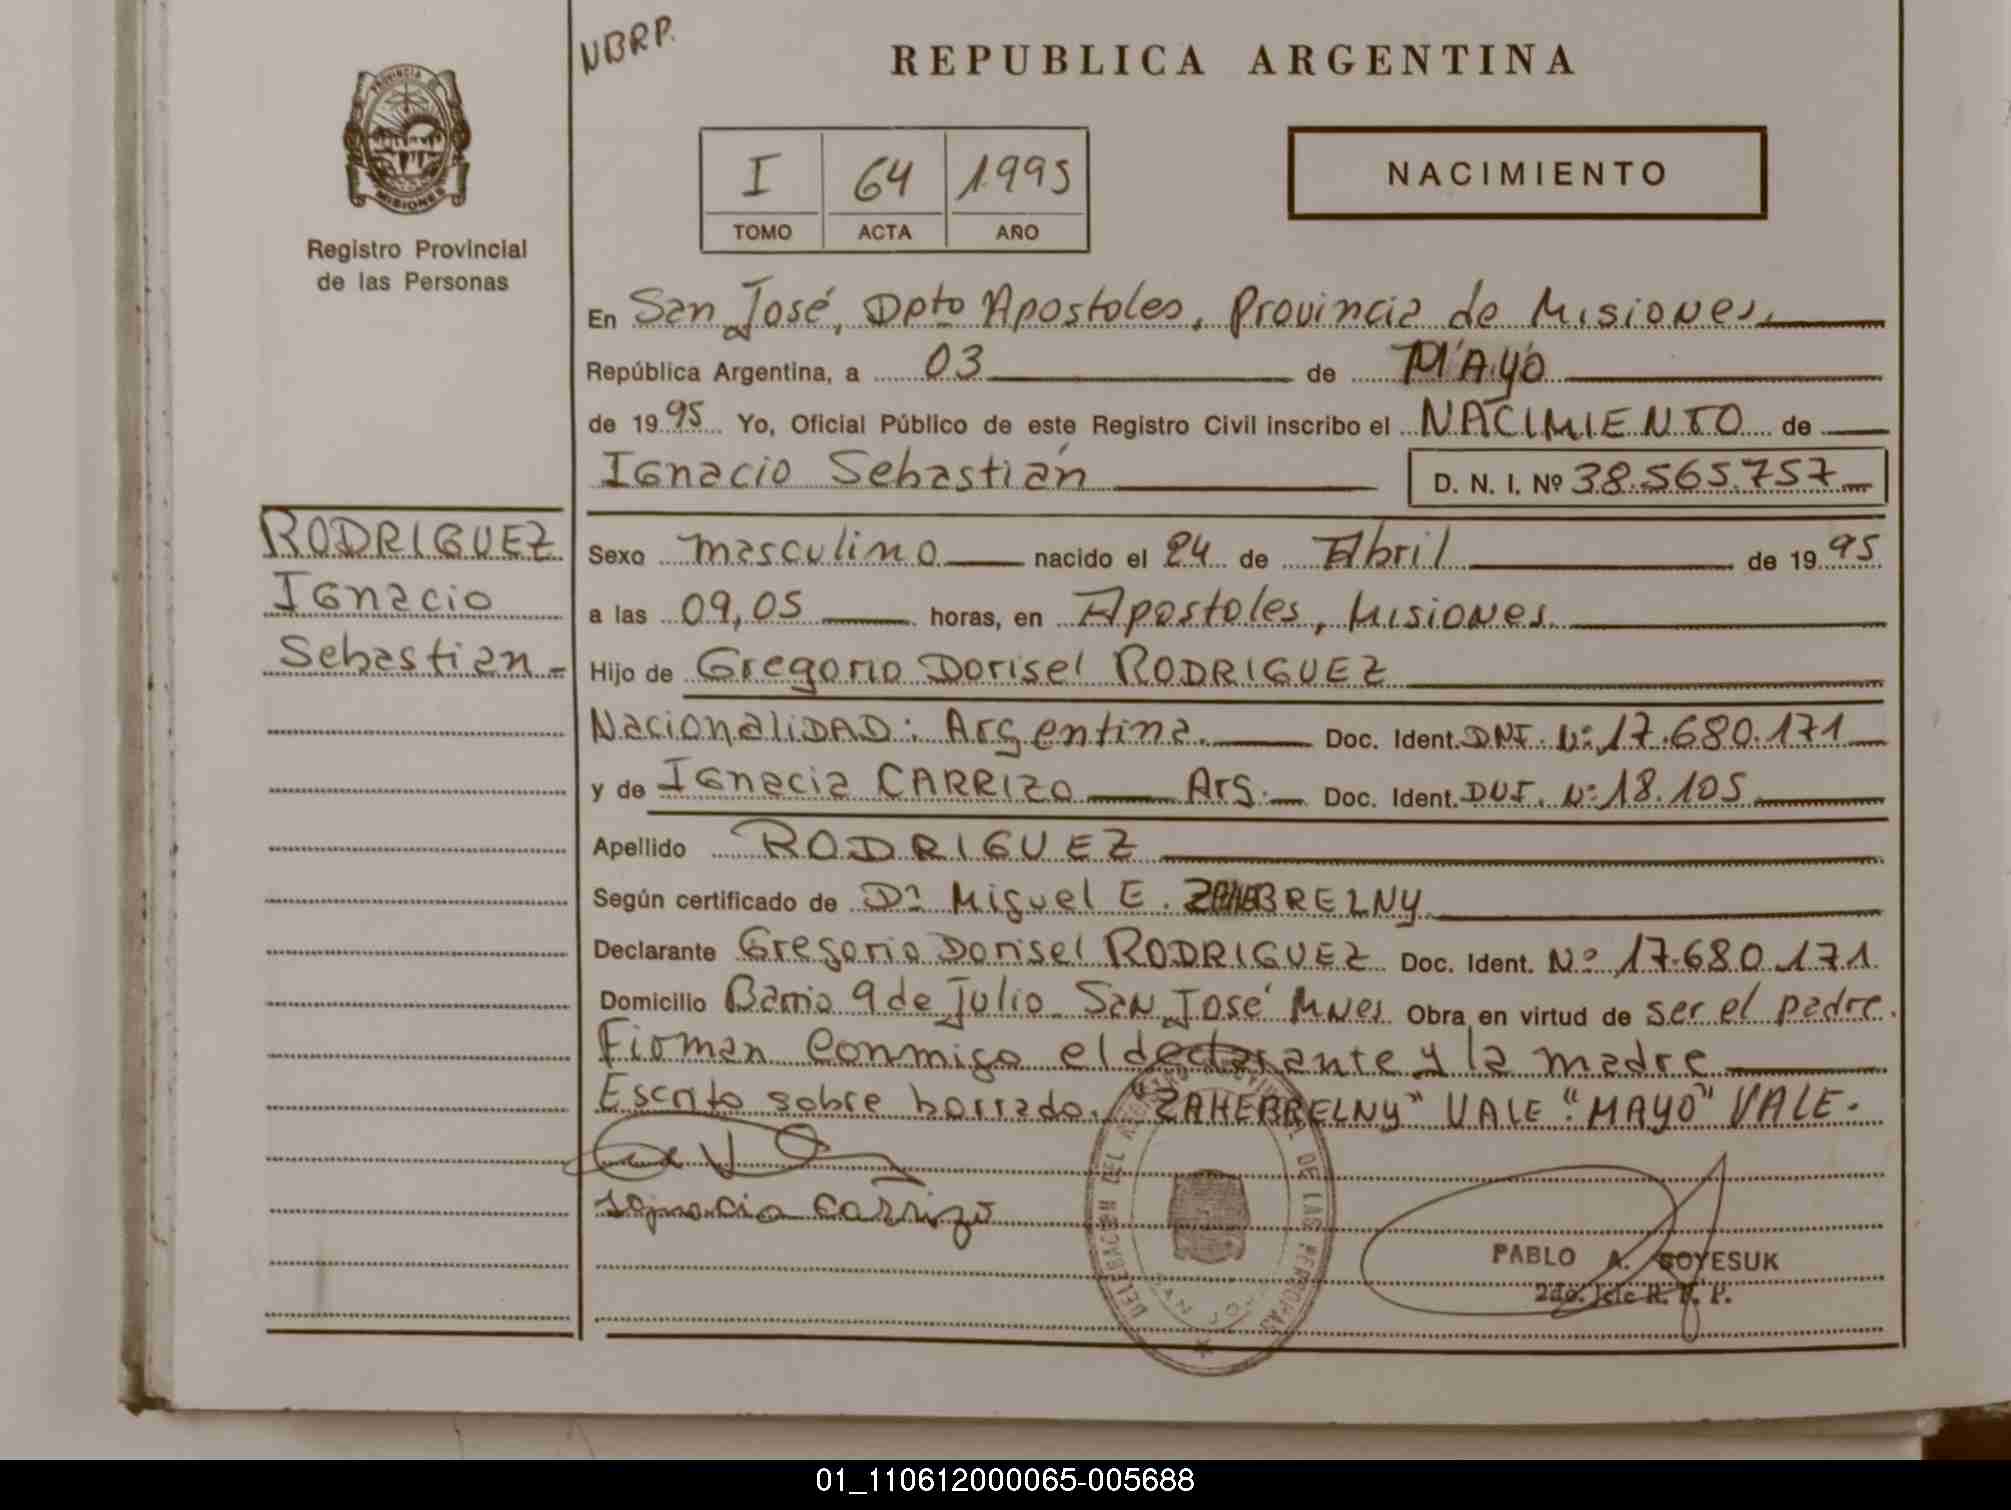 NBRP.
REPUBLICA ARGENTINA
PROVINCIA DE
MISIONES
Registro Provincial
de las Personas
I 64 1995
TOMO ACTA AÑO
NACIMIENTO
En San José, Dpto Apostoles, Provincia de Misiones,
República Argentina, a 03 de MAYO
de 1995 Yo, Oficial Público de este Registro Civil inscribo el NACIMIENTO de
Ignacio Sebastián D. N. I. Nº 38.565.757
RODRIGUEZ
Ignacio
Sebastian
Sexo masculino nacido el 24 de Abril de 1995
a las 09,05 horas, en Apostoles, Misiones.
Hijo de Gregorio Dorisel RODRIGUEZ
NacionaliDAD: Argentina. Doc. Ident. DNI. Nº 17.680.171
y de Ignacia CARRIZO Arg. Doc. Ident. DNI. Nº 18.105
Apellido RODRIGUEZ
Según certificado de Dr Miguel E. ZAHEBRELNY
Declarante Gregorio Dorisel RODRIGUEZ Doc. Ident. Nº 17.680.171
Domicilio Barrio 9 de Julio San José Mnes Obra en virtud de ser el padre.
Firman conmigo el declarante y la madre
Escrito sobre borrado. "ZAHEBRELNY" VALE "MAYO" VALE.
Ignacia Carrizo
DELEGACION DEL REGISTRO PROVINCIAL DE LAS PERSONAS
SAN JOSE
PABLO A. SOYESUK
2do. Jefe R. P. P.
01_110612000065-005688